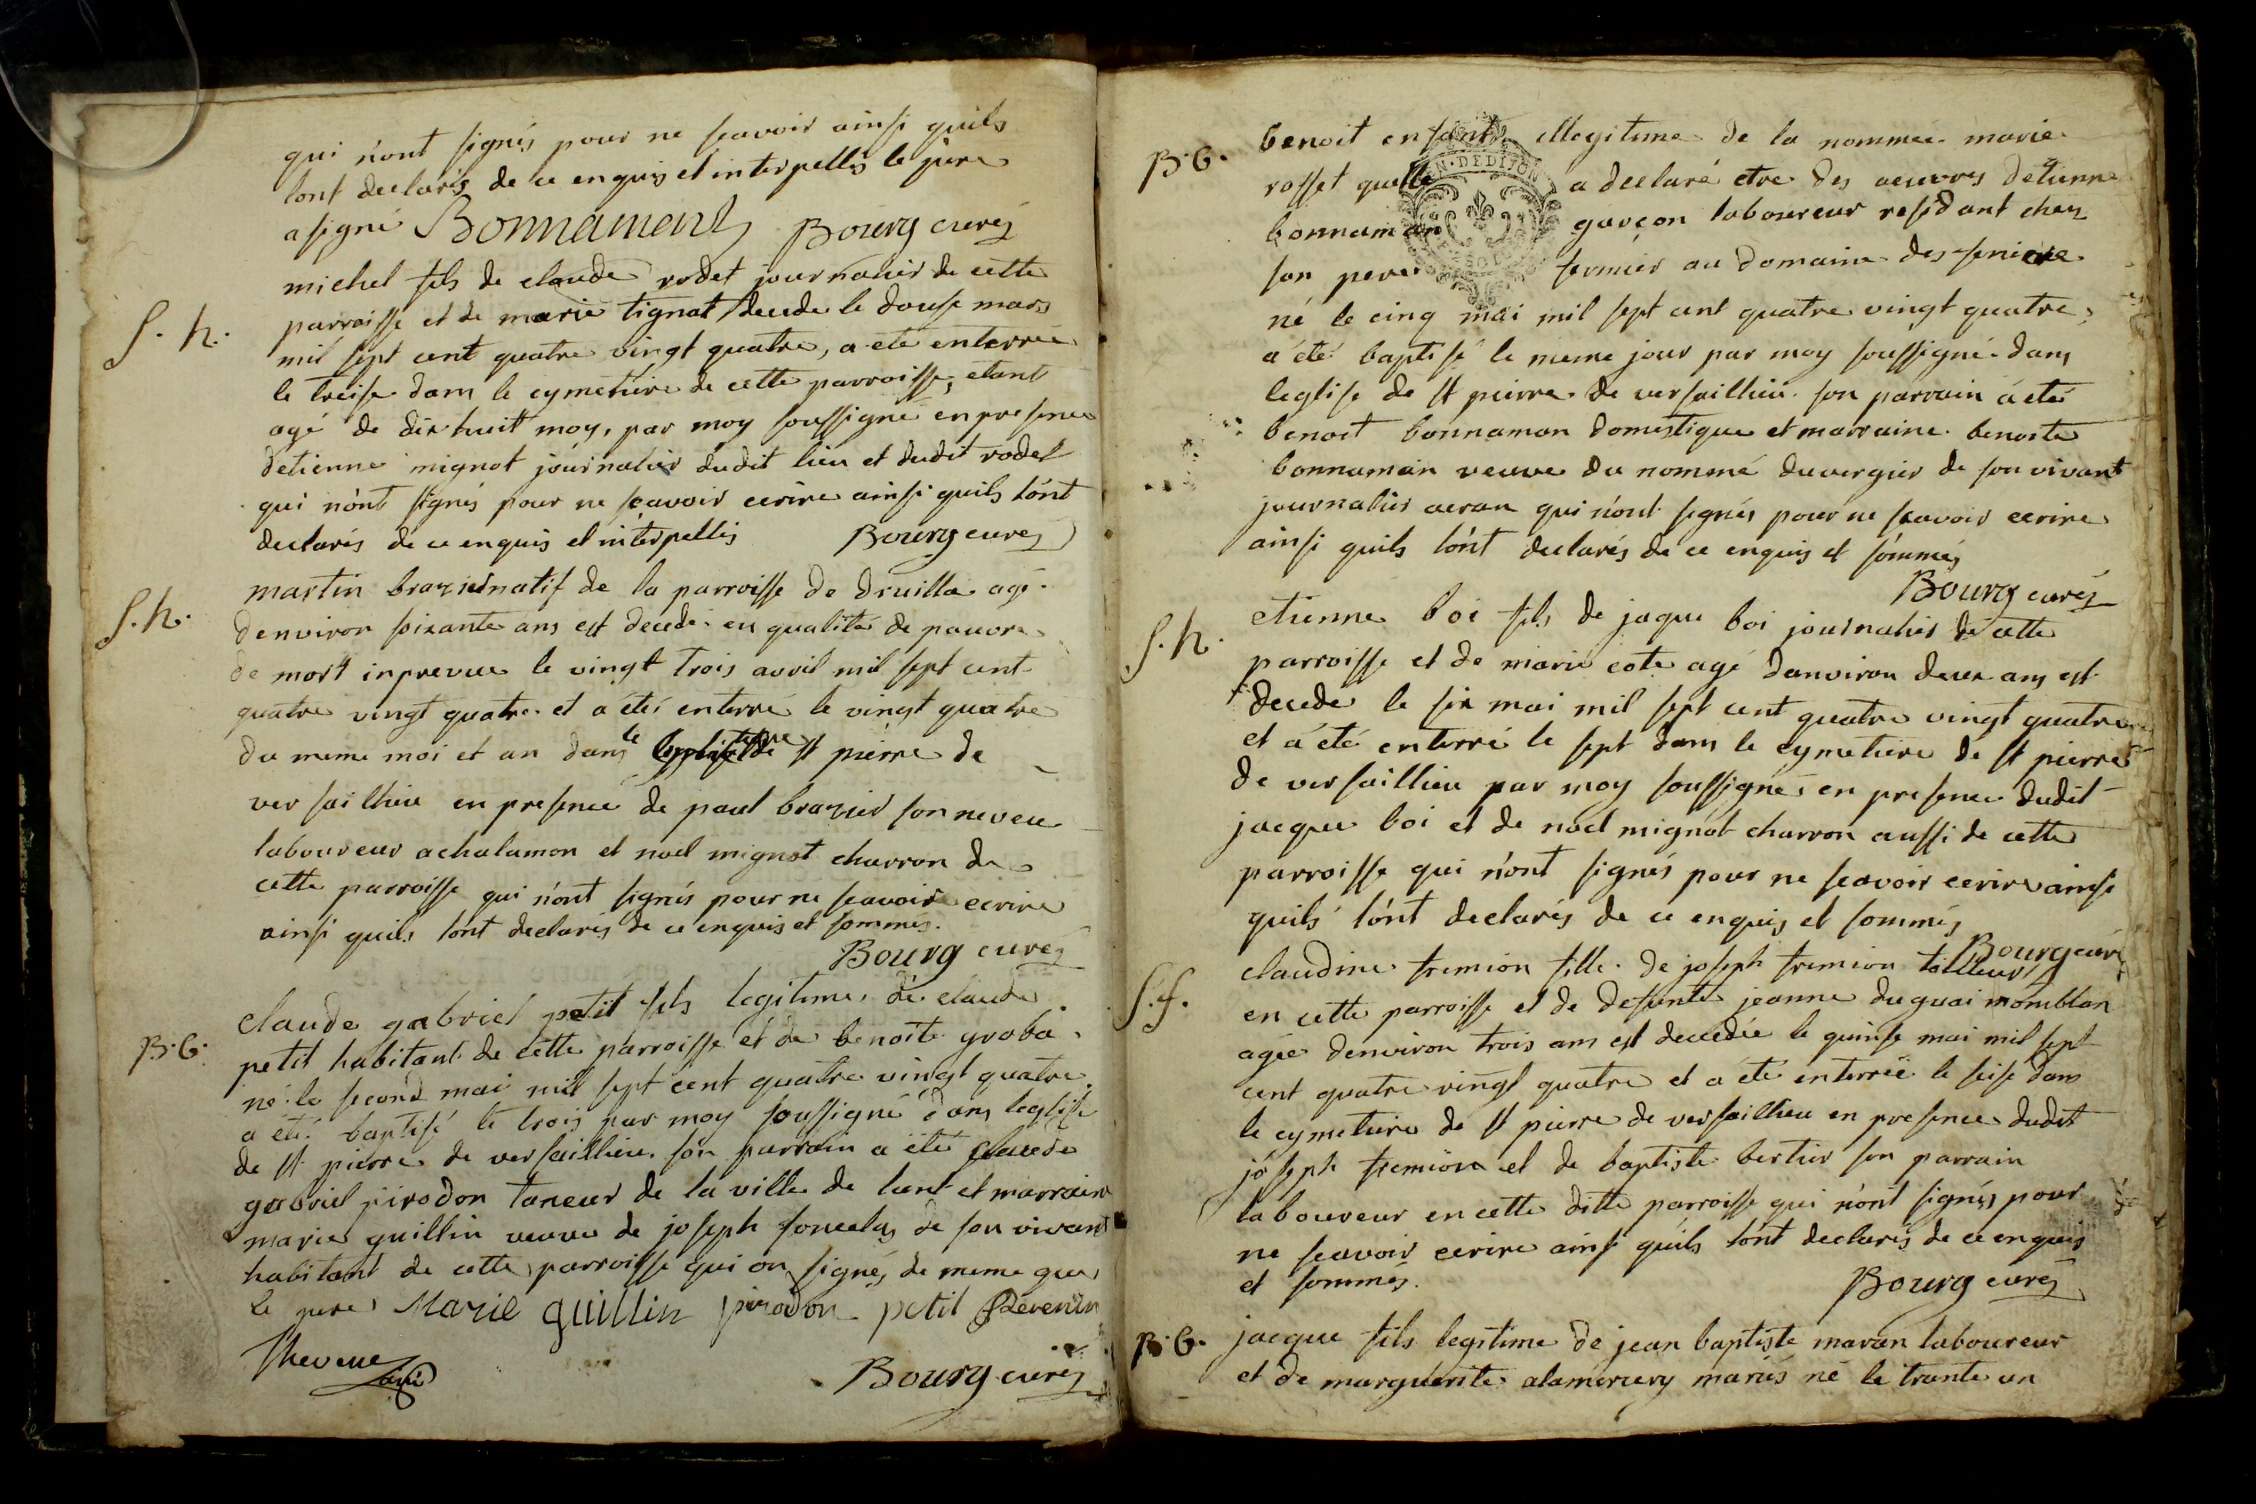 qui n'ont signés pour ne scavoir ainsi quils
lont declarés de ce enquis et interpellés le pere
a signé Bonnament Bourg curé
michel fils de claude rodet journalier de cette
S. h. parroisse et de marie tignat decede le douse mars
mil sept cent quatre vingt quatre, a été enterrée
le treise dans le cymetiere de cette parroisse, etant
agé de dix huit moy, par moy soussigné en presence
detienne mignot journalier dudit lieu et dudit rodet
qui nont signés pour ne scavoir ecrire ainsi quils lont
declarés de ce enquis et interpellés Bourg curé
S. h. martin brazier natif de la parroisse de druilla agé
denviron soixante ans est decedé en qualité de pauvre
de mort inprevue le vingt trois avril mil sept cent
quatre vingt quatre et a été enterré le vingt quatre
du meme moi et an dans le st pierre de
versaillieu en presence de paul brazier son neveu
laboureur a chalamon et noel mignot charron de
cette parroisse qui n'ont signés pour ne scavoir ecrire
ainsi quils lont declarés de ce enquis et sommés.
Bourg curé
claude gabriel petit fils legitime de claude
B. G. petit habitant de cette parroisse et de benoite groba
né le second mai mil sept cent quatre vingt quatre
a été baptisé le trois par moy soussigné dans leglise
de st pierre de versaillieu son parrain a été claude
gabriel pirodon taneur de la ville de lient et marraine
marie guillin veuve de joseph foncelas de son vivant
habitant de cette parroisse qui on signés de meme que
le pere Marie guillin pirodon petit
Bourg curé
B. G. benoit enfant illegitime de la nommée marie
rosset quelle a declaré etre des oeuvres detienne
bonnaman garçon laboureur residant chez
son pere fermier au domaine des
né le cinq mai mil sept cent quatre vingt quatre
a été baptisé le meme jour par moy soussigné dans
leglise de st pierre de versaillieu son parrain a été
benoit bonnaman domestique et marraine benoite
bonnamain veuve du nommé duvergier de son vivant
journalier a cran qui n'ont signés pour ne scavoir ecrire
ainsi quils lont declarés de ce enquis et sommés
Bourg curé
etienne boi fils de jaque boi journalier de cette
S. h. parroisse et de marie cote agé denviron deux ans est
decede le six mai mil sept cent quatre vingt quatre
et a été enterré le sept dans le cymetiere de st pierre
de versaillieu par moy soussigné en presence dudit
jacque boi et de noel mignot charron aussi de cette
parroisse qui n'ont signés pour ne scavoir ecrire ainsi
quils lont declarés de ce enquis et sommés
Bourg curé
S. f. claudine fremion fille de joseph fremion tailleur
en cette parroisse et de defunte jeanne duguai momblan
agée denviron trois ans est decedée le quinse mai mil sept
cent quatre vingt quatre et a été enterrée le seise dans
le cymetiere de st pierre de versaillieu en presence dudit
joseph fremion et de baptiste bertier son parrain
laboureur en cette ditte parroisse qui n'ont signés pour
ne scavoir ecrire ainsi quils lont declarés de ce enquis
et sommés. Bourg curé
B. G. jacque fils legitime de jean baptiste maran laboureur
et de marguerite alamercery mariés né le trante un